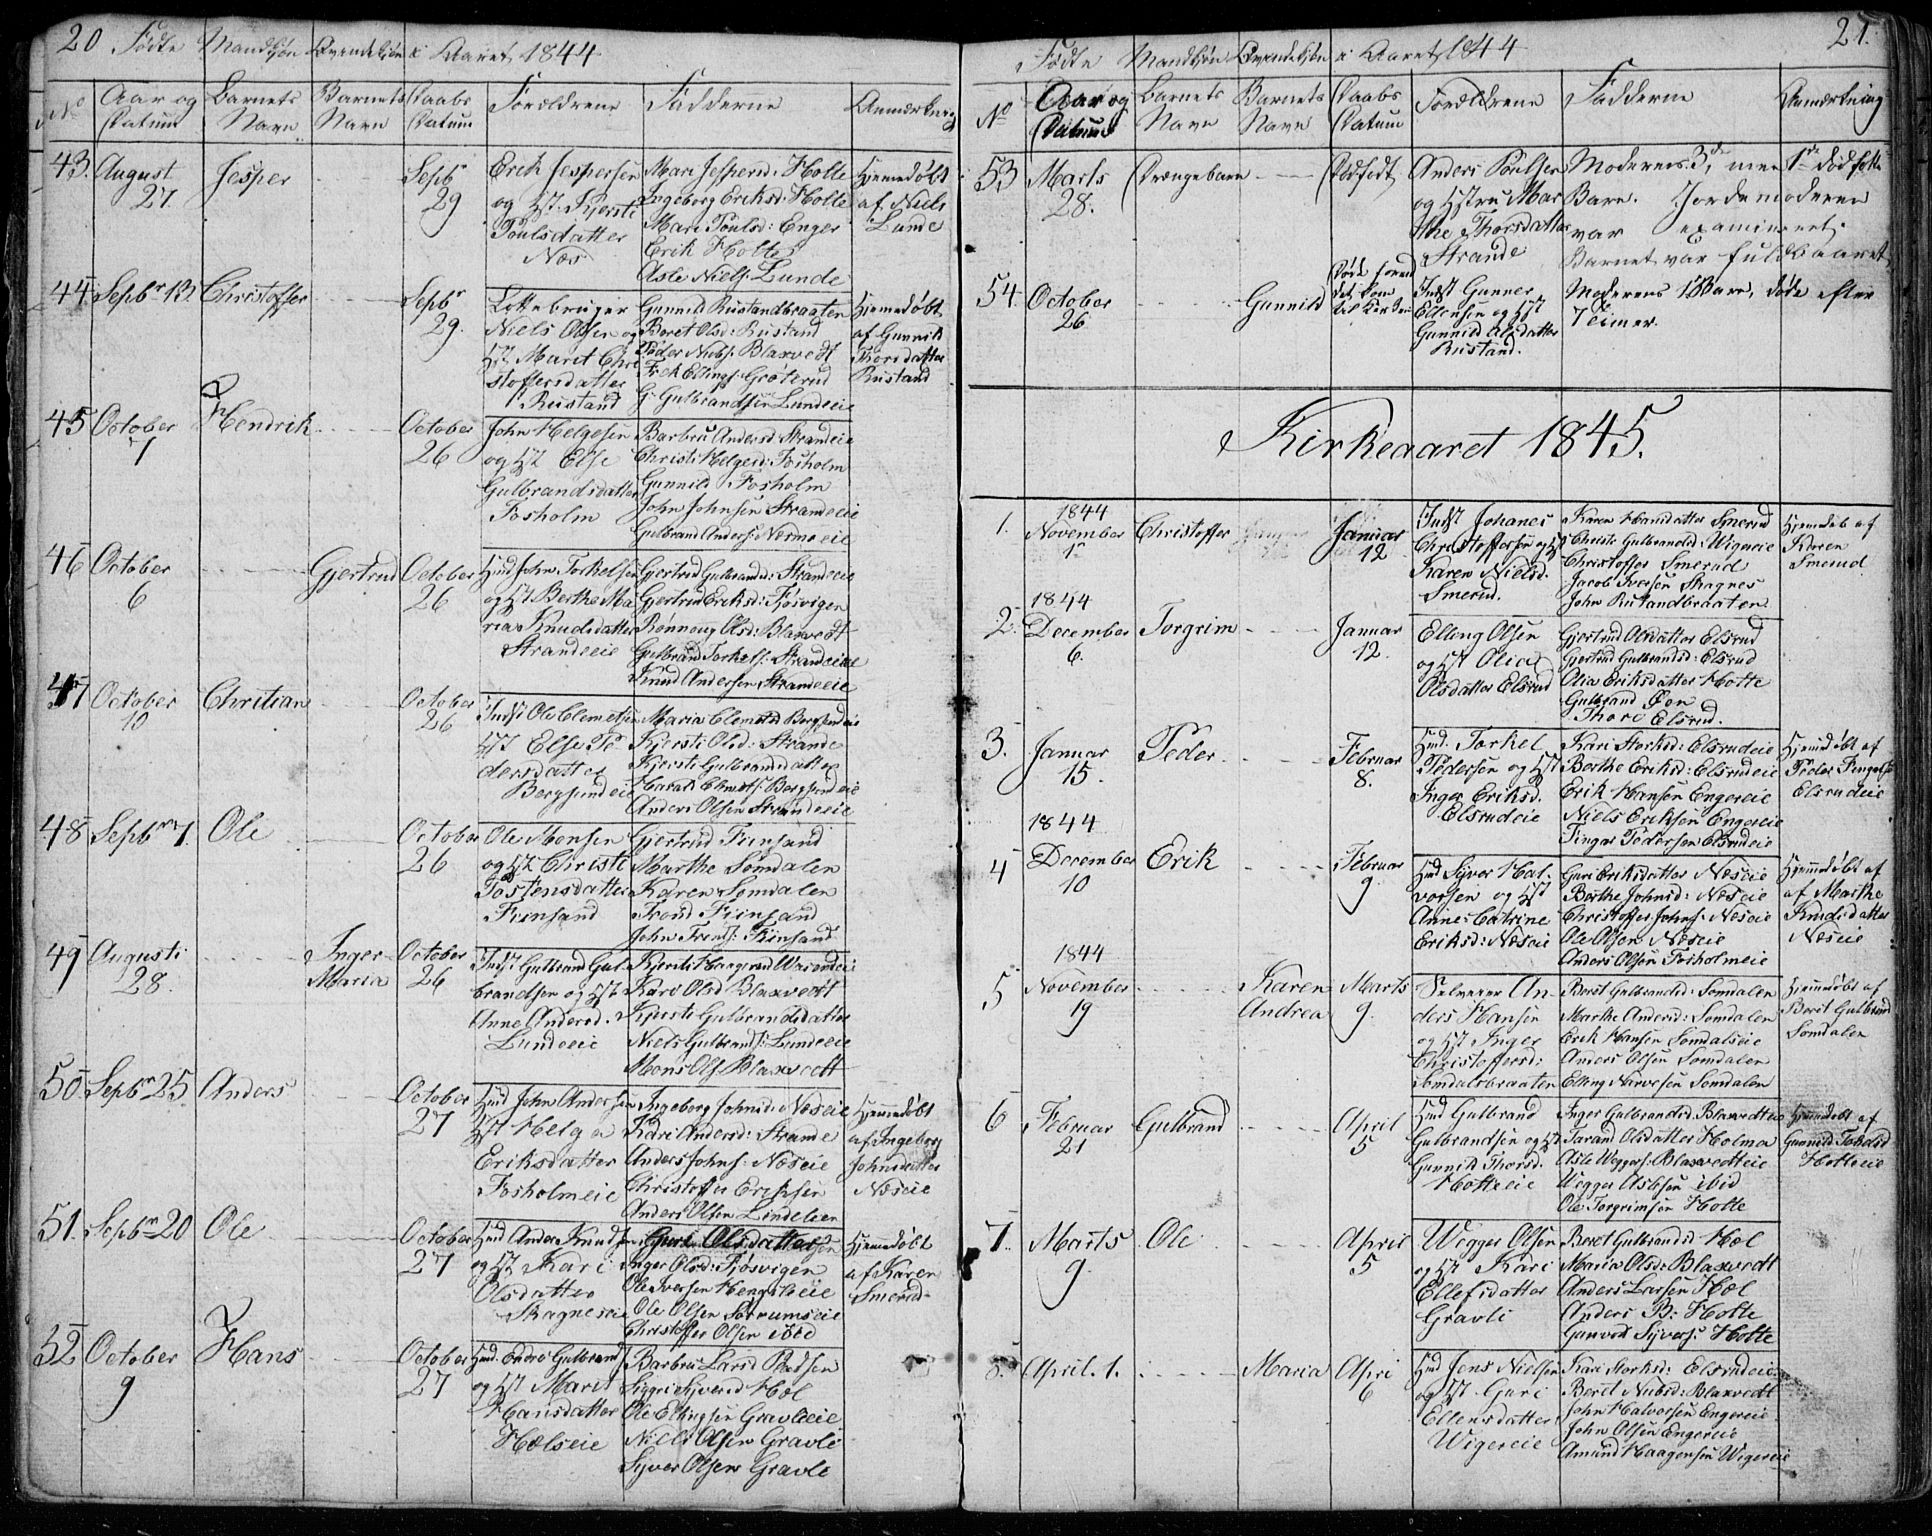 20 Fødte Mandkjøn Qvendekjøn i Aaret 1844
No
Aar og Datum
Barnets Navn
Barnets Navn
Daabs Datum
Forældrene
Fadderne
Anmærkning
43. August 27 Jesper Sepbr 29
Erik Jespersen
og Hst. Kjersti
Poulsdatter
Næs
Mari Jespersd: Holte
Ingeborg Eriksd: Holte
Mari Poulsd: Enger
Erik Holte
Asle Niels: Lunde
Hjemedøbt
af Niels
Lunde
44 Sepbr 13 Christoffer Sepbr 29.
Niels Olsen og
Hst Marit Chri
stoffersdatter
Rustand
Gunnild Rustandbraaten
Beret Olsd: Rustand
Peder Niels: Blaxvedt
Erik Ellings: Groterud
G: Gulbrandsen Lundeeie
Hjemedøbt
af Gunnild
Thorsdatter
Rustand
45 October 7 Hendrik October 26
John Helgesen
og Hst Else
Gulbrandsdatter
Fosholm
Barbru Andersd Strandeie
Christi Helgesd: Fosholm
Gunnild Fosholm
John Johnsen Strandeeie
Gulbrand Anders: Nermoeie
46 October 6 Gjertrud October 26
Hmd John Torkelsen
og Hst Berthe Ma
ria Knudsdatter
Strandeeie
Gjertrud Gulbrandsd: Strandeeie
Gjertrud Eriksd: Fjøsvigen
Rønnoug Olsd: Blaxvedt
Gulbrand Torkels: Strandeeie
Knud Andersen Strandeeie
47 October 10 Christian October 26
Indst Ole Clemetsen
Hst Else Pe
dersdatter
Bergsundeie
Maria Clemetsd Bergsundeie
Kjersti Olsd: Strande
Kjersti Gulbrandsdatter
Harald Clemets: Bergsundeie
Anders Olsen Strandeeie
48 Sepbr 7. Ole October 26
Ole Monsen
og Hst Christi
Tostensdatter
Finsand
Gjertrud Finsand
Marthe Sømdalen
Karen Sømdalen
Trond Finsand
John Trends: Finsand
49 Augusti 28. Inger Maria October 26
Indst Gulbrand Gul
brandsen og Hst
Anne Andersd.
Lundeeie
Kari Olsd Blaxvedt
Kjersti Gulbrandsdatter
Niels Gulbrands: Lundeeie
Mons Ols Blaxvedt
50 Sepbr 25 Anders October 27
Hmd John Andersen
Hst Helga
Eriksdatter
Fosholmeie
Ingeborg Johnsd: Næseie
Kari Andersd: Strande
Anders Johns: Næseie
Christoffer Eriksen
Anders Olsen Lindelien
Hjemmedøbt
af Ingeborg
Johnsdatter
Næseie
51. Sepbr 20 Ole October 27
Hmd Anders Knuds
og Hst Kari
Olsdatter
Skagneseie
Guri Olsdatter
Inger Olsd: Fjøsvigen
Ole Iversen Hengsleeie
Ole Olsen Sørumseie
Christoffer Olsen ibid
Hjemmedøbt
af Karen
Smerud
52 October 9 Hans October 27
Hmd. Endre Gulbrand
og Hst Marit
Hansdatter
Hælseie
Barbru Larsd
Siggri Syversd Hæl
Ole Ellingsen Gravlieie
Niels Olsen Gravli
Syver Olsen Gravle
Fødte Mandkjøn Qvendekjøn i Aaret 1844 21.
No
Aar og Datum
Barnets Navn
Barnets Navn
Daabs Datum
Forældrene
Fadderne
Anmærkning
53 Marts 28. Drængebarn Dødfødt
Anders Poulsen
og Hstru Mar
the Thorsdatter
Strande
Moderens 3de, men 1ste dødfødte
Barn. Jordemoderen
var examineret.
Barnet var fuldbaaret
54. October 26 Gunnild
Døde forend
det kom
til Kirken
Indst Gunner
Ellensen og Hst
Gunnild Olsdatter
Rustand.
Moderens 1 Barn, døde efter
7 Timer.
Kirkeaaret 1845.
1. 1844 November 1 Christoffer Januar 12
Indst Johanes
Christoffersen og Hst
Karen Nielsd.
Smerud.
Karen Hansdatter Smerud
Christi Gulbrandsd: Wigereie
Christoffer Smerud
Jacob Iversen Skagnes
John Rustandbraaten
Hjemdøb af
Karen
Smerud
2. 1844 December 6. Torgrim Januar 12.
Elling Olsen
og Hst Olia
Olsdatter Elsrud
Gjertrud Olsdatter Elsrud
Gjertrud Gulbrandsd: Elsrud
Olia Eriksdatter Holte
Gulbrand Øen
Thore Elsrud.
3. Januar 15. Peder Februar 8.
Hmd. Torkel
Pedersen og Hst
Inger Eriksd.
Elsrudeie
Kari Storksd: Elsrudeie
Berthe Eriksd: Elsrudeie
Erik Hansen Engereie
Niels Eriksen Engereie
Fingar Pedersen Elsrudeie
Hjemdøbt af
Peder
Elsrudeie
4 1844 December 10 Erik Februar 9
Hmd Syver Hal-
vorsen og Hst
Anne Catrine
Eriksd: Næseie
Guri Eriksdatter Næseie
Berthe Johnsd: Næseie
Christoffer Johns: Næseie
Ole Olsen Næseie
Anders Olsen Fosholmeie
Hjemmedøbt af
af Marthe
Knudsdatter
Næseie
5 1844 November 19 Karen Andrea Marts 9.
Selveier An-
ders Hansen
og Hst Inger
Christoffersd:
Sømdalsbraaten
Beret Gulbrandsd: Sømdalen
Marthe Andersd: Sømdalen
Erik Hansen Sømdalseie
Anders Olsen Sømdalen
Elling Narvesen Sømdalen
Hjemmedøbt af
Beret Gulbrand
Sømdalen
6 Februar 21 Gulbrand April 5
Hmd Gulbrand
Gulbrandsen og Hst
Gunnild Thorsd.
Holteeie
Inger Gulbrandsd: Blaxvedteie
Tarand Olsdatter Holma
Asle Weggers: Blaxvedteie
Wegger Aslesen ibid
Ole Torgrimsen Holte
Hjemdøbt af
Gunnild
Holteeie
7. Marts 9. Ole April 5
Wegger Olsen
og Hst Kari
Ellefsdatter
Gravli
Beret Gulbrandsd Hæl
Maria Olsd: Blaxvedt
Anders Larsen Hæl
Anders B: Holte
Gunvor Syvers: Holte
8. April. 1. Maria April 6
Hmd Jens Nielsen
og Hst Guri
Ellensdatter
Wigereie
Kari Storksd: Elsrudeie
Beret Nielsd: Blaxvedt
John Halvorsen Engereie
John Olsen Engereie
Amund Haagensen Wigereie